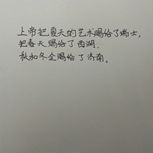 上帝把夏天的艺术赐给了瑞士,
把春天赐给了西湖,
秋和冬全赐给了济南。